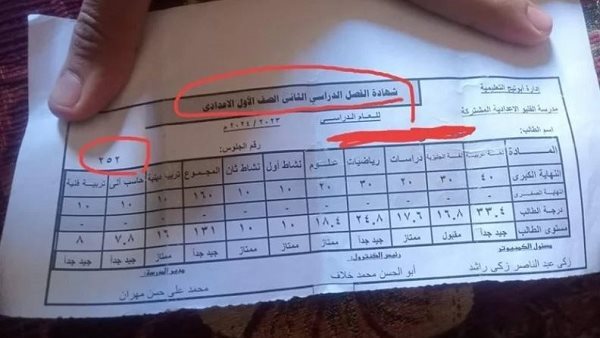 إدارة أبوتيج التعليمية
شهادة الفصل الدراسي الثاني الصف الأول الاعدادى
مدرسة القليو الاعدادية المشتركة
للعام الدراسي
٢٠٢٣ / ٢٠٢٤ م
إسم الطالب:
رقم الجلوس: ٢٥٢
المــادة لغة عربية لغة انجليزية دراسات رياضيات علــوم نشاط أول نشاط ثان المجموع تربية دينية حاسب آلى تربية فنية
النهاية الكبرى ٤٠ ٣٠ ٢٠ ٣٠ ٢٠ ١٠ ١٠ ١٦٠ ١٠ ١٠
النهاية الصغرى - - - - - - - - - - -
درجة الطالب ٣٣,٤ ١٦,٨ ١٧,٦ ٢٤,٨ ١٨,٤ ١٠ ١٠ ١٣١ ١٦ ٧,٨ ٨
مستوى الطالب جيد جداً مقبول ممتاز جيد جداً ممتاز ممتاز ممتاز جيد جداً ممتاز جيد جداً جيد جداً
مسئول الكمبيوتر رئيس الكنترول: مدير المدرسة:
زكى عبد الناصر زكى راشد أبو الحسن محمد خلاف محمد على حسن مهران